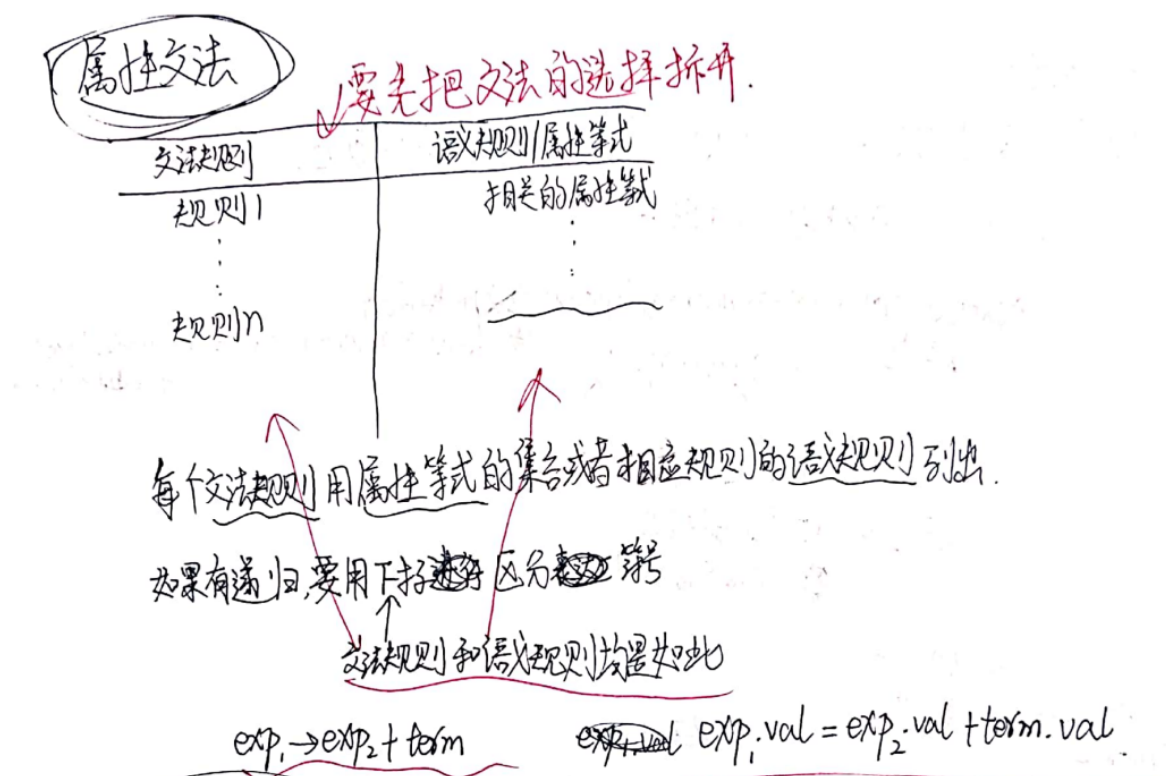 属性文法
要先把文法的选择拆开.
文法规则 语义规则/属性等式
规则1 相关的属性等式
规则n
每个文法规则用属性等式的集合或者相应规则的语义规则列出.
如果有递归,要用下标区分 符号
文法规则和语义规则均是如此
exp₁→exp₂+term exp₁.val = exp₂.val + term.val